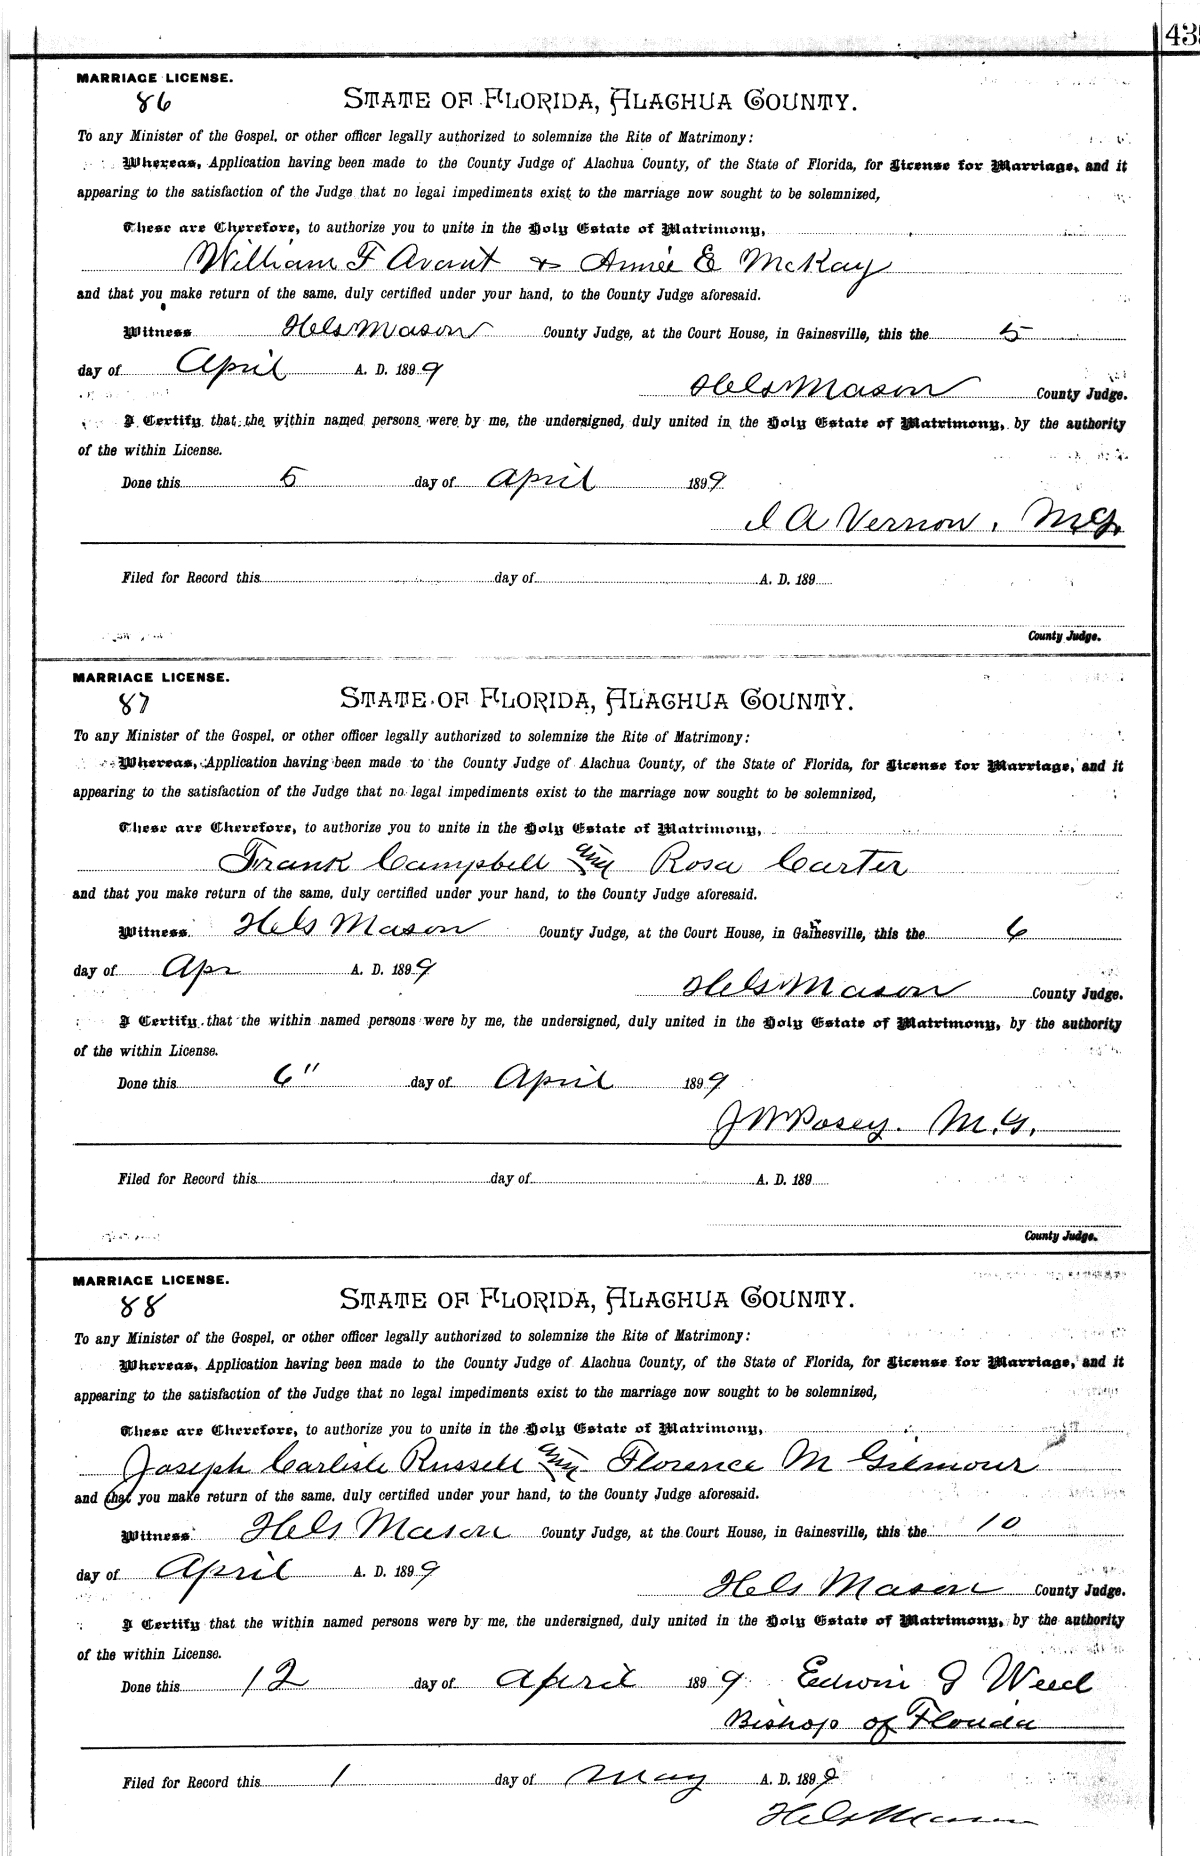 435
MARRIAGE LICENSE.
86
STATE OF FLORIDA, ALACHUA COUNTY.
To any Minister of the Gospel, or other officer legally authorized to solemnize the Rite of Matrimony:
Whereas, Application having been made to the County Judge of Alachua County, of the State of Florida, for License for Marriage, and it
appearing to the satisfaction of the Judge that no legal impediments exist to the marriage now sought to be solemnized,
These are Therefore, to authorize you to unite in the Holy Estate of Matrimony,
William F Avant & Annie E McKay
and that you make return of the same, duly certified under your hand, to the County Judge aforesaid.
Witness Mason County Judge, at the Court House, in Gainesville, this the 5
day of April A. D. 1899
Mason County Judge.
I Certify that the within named persons were by me, the undersigned, duly united in the Holy Estate of Matrimony, by the authority
of the within License.
Done this 5 day of April 1899
A Vernon, M.G.
Filed for Record this day of A. D. 189
County Judge.
MARRIAGE LICENSE.
87
STATE OF FLORIDA, ALACHUA COUNTY.
To any Minister of the Gospel, or other officer legally authorized to solemnize the Rite of Matrimony:
Whereas, Application having been made to the County Judge of Alachua County, of the State of Florida, for License for Marriage, and it
appearing to the satisfaction of the Judge that no legal impediments exist to the marriage now sought to be solemnized,
These are Therefore, to authorize you to unite in the Holy Estate of Matrimony,
Frank Campbell and Rosa Carter
and that you make return of the same, duly certified under your hand, to the County Judge aforesaid.
Witness Mason County Judge, at the Court House, in Gainesville, this the 6
day of Apr A. D. 1899
Mason County Judge.
I Certify that the within named persons were by me, the undersigned, duly united in the Holy Estate of Matrimony, by the authority
of the within License.
Done this 6" day of April 1899
J W Posey. M.G.
Filed for Record this day of A. D. 189
County Judge.
MARRIAGE LICENSE.
88
STATE OF FLORIDA, ALACHUA COUNTY.
To any Minister of the Gospel, or other officer legally authorized to solemnize the Rite of Matrimony:
Whereas, Application having been made to the County Judge of Alachua County, of the State of Florida, for License for Marriage, and it
appearing to the satisfaction of the Judge that no legal impediments exist to the marriage now sought to be solemnized,
These are Therefore, to authorize you to unite in the Holy Estate of Matrimony,
Joseph Carlisle Russell and Florence M Gilmour
and that you make return of the same, duly certified under your hand, to the County Judge aforesaid.
Witness Mason County Judge, at the Court House, in Gainesville, this the 10
day of April A. D. 1899
Mason County Judge.
I Certify that the within named persons were by me, the undersigned, duly united in the Holy Estate of Matrimony, by the authority
of the within License.
Done this 12 day of April 1899 Edwin G Weed
Bishop of Florida
Filed for Record this 1 day of May A. D. 1899
Mason